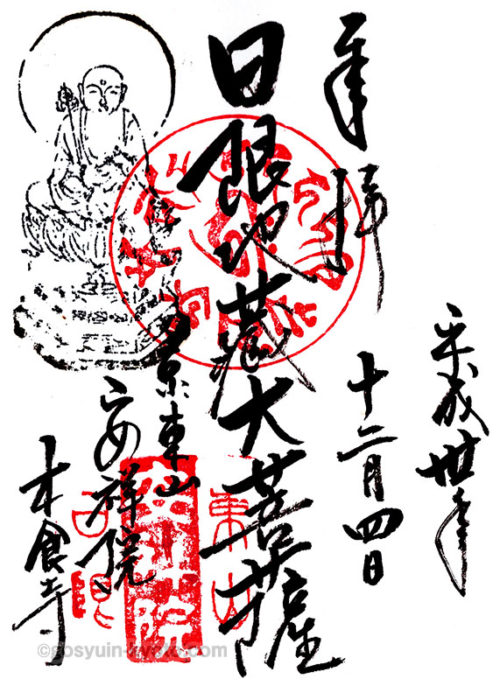 奉拝
平成卅年
十二月四日
日限地蔵大菩薩
京東山
安祥院
木食寺
東山
安祥院
日限
©gosyuin-kyoto.com